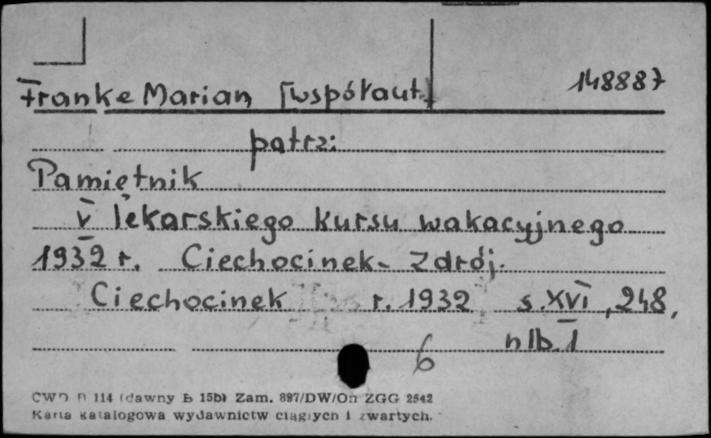 Franke Marian [współaut.] 148887
patrz:
Pamiętnik
V lekarskiego kursu wakacyjnego
1932 r. Ciechocinek-Zdrój.
Ciechocinek r. 1932 s. XVI, 248,
nlb. 1
6
CWD B 114 (dawny B 15b) Zam. 897/DW/On ZGG 2542
Karta katalogowa wydawnictw ciągłych i zwartych.